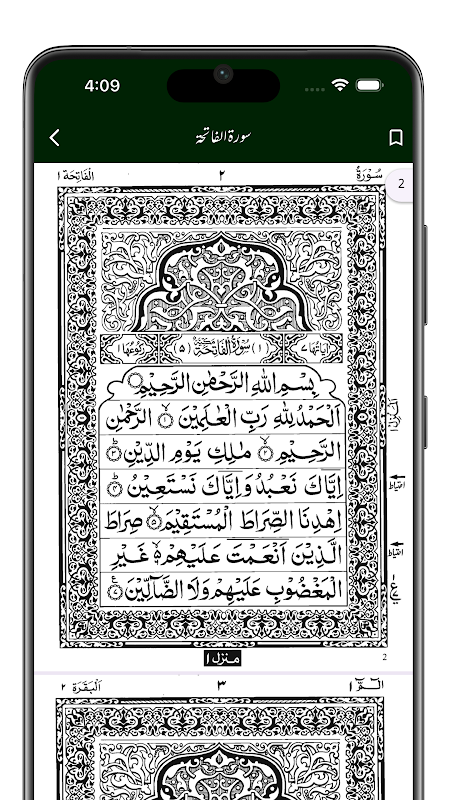 4:09
سورۃ الفاتحۃ
سُوْرَةُ ٢ اَلْفَاتِحَة ١
2
اٰيَاتُهَا ٧ (١) سُوْرَةُ الْفَاتِحَةِ مَكِّيَّةٌ (٥) رُكُوْعُهَا ١
بِسْمِ اللهِ الرَّحْمٰنِ الرَّحِيْمِ
اَلْحَمْدُ لِلّٰهِ رَبِّ الْعٰلَمِيْنَ ١ الرَّحْمٰنِ
الرَّحِيْمِ ٢ مٰلِكِ يَوْمِ الدِّيْنِ ٣
اِيَّاكَ نَعْبُدُ وَاِيَّاكَ نَسْتَعِيْنُ ٤
اِهْدِنَا الصِّرَاطَ الْمُسْتَقِيْمَ ٥ صِرَاطَ
الَّذِيْنَ اَنْعَمْتَ عَلَيْهِمْ ٦ غَيْرِ
الْمَغْضُوْبِ عَلَيْهِمْ وَلَا الضَّآلِّيْنَ ٧
احتیاط
احتیاط
منزل ١
2
الٓمّٓ ١ ٣ اَلْبَقَرَة ٢